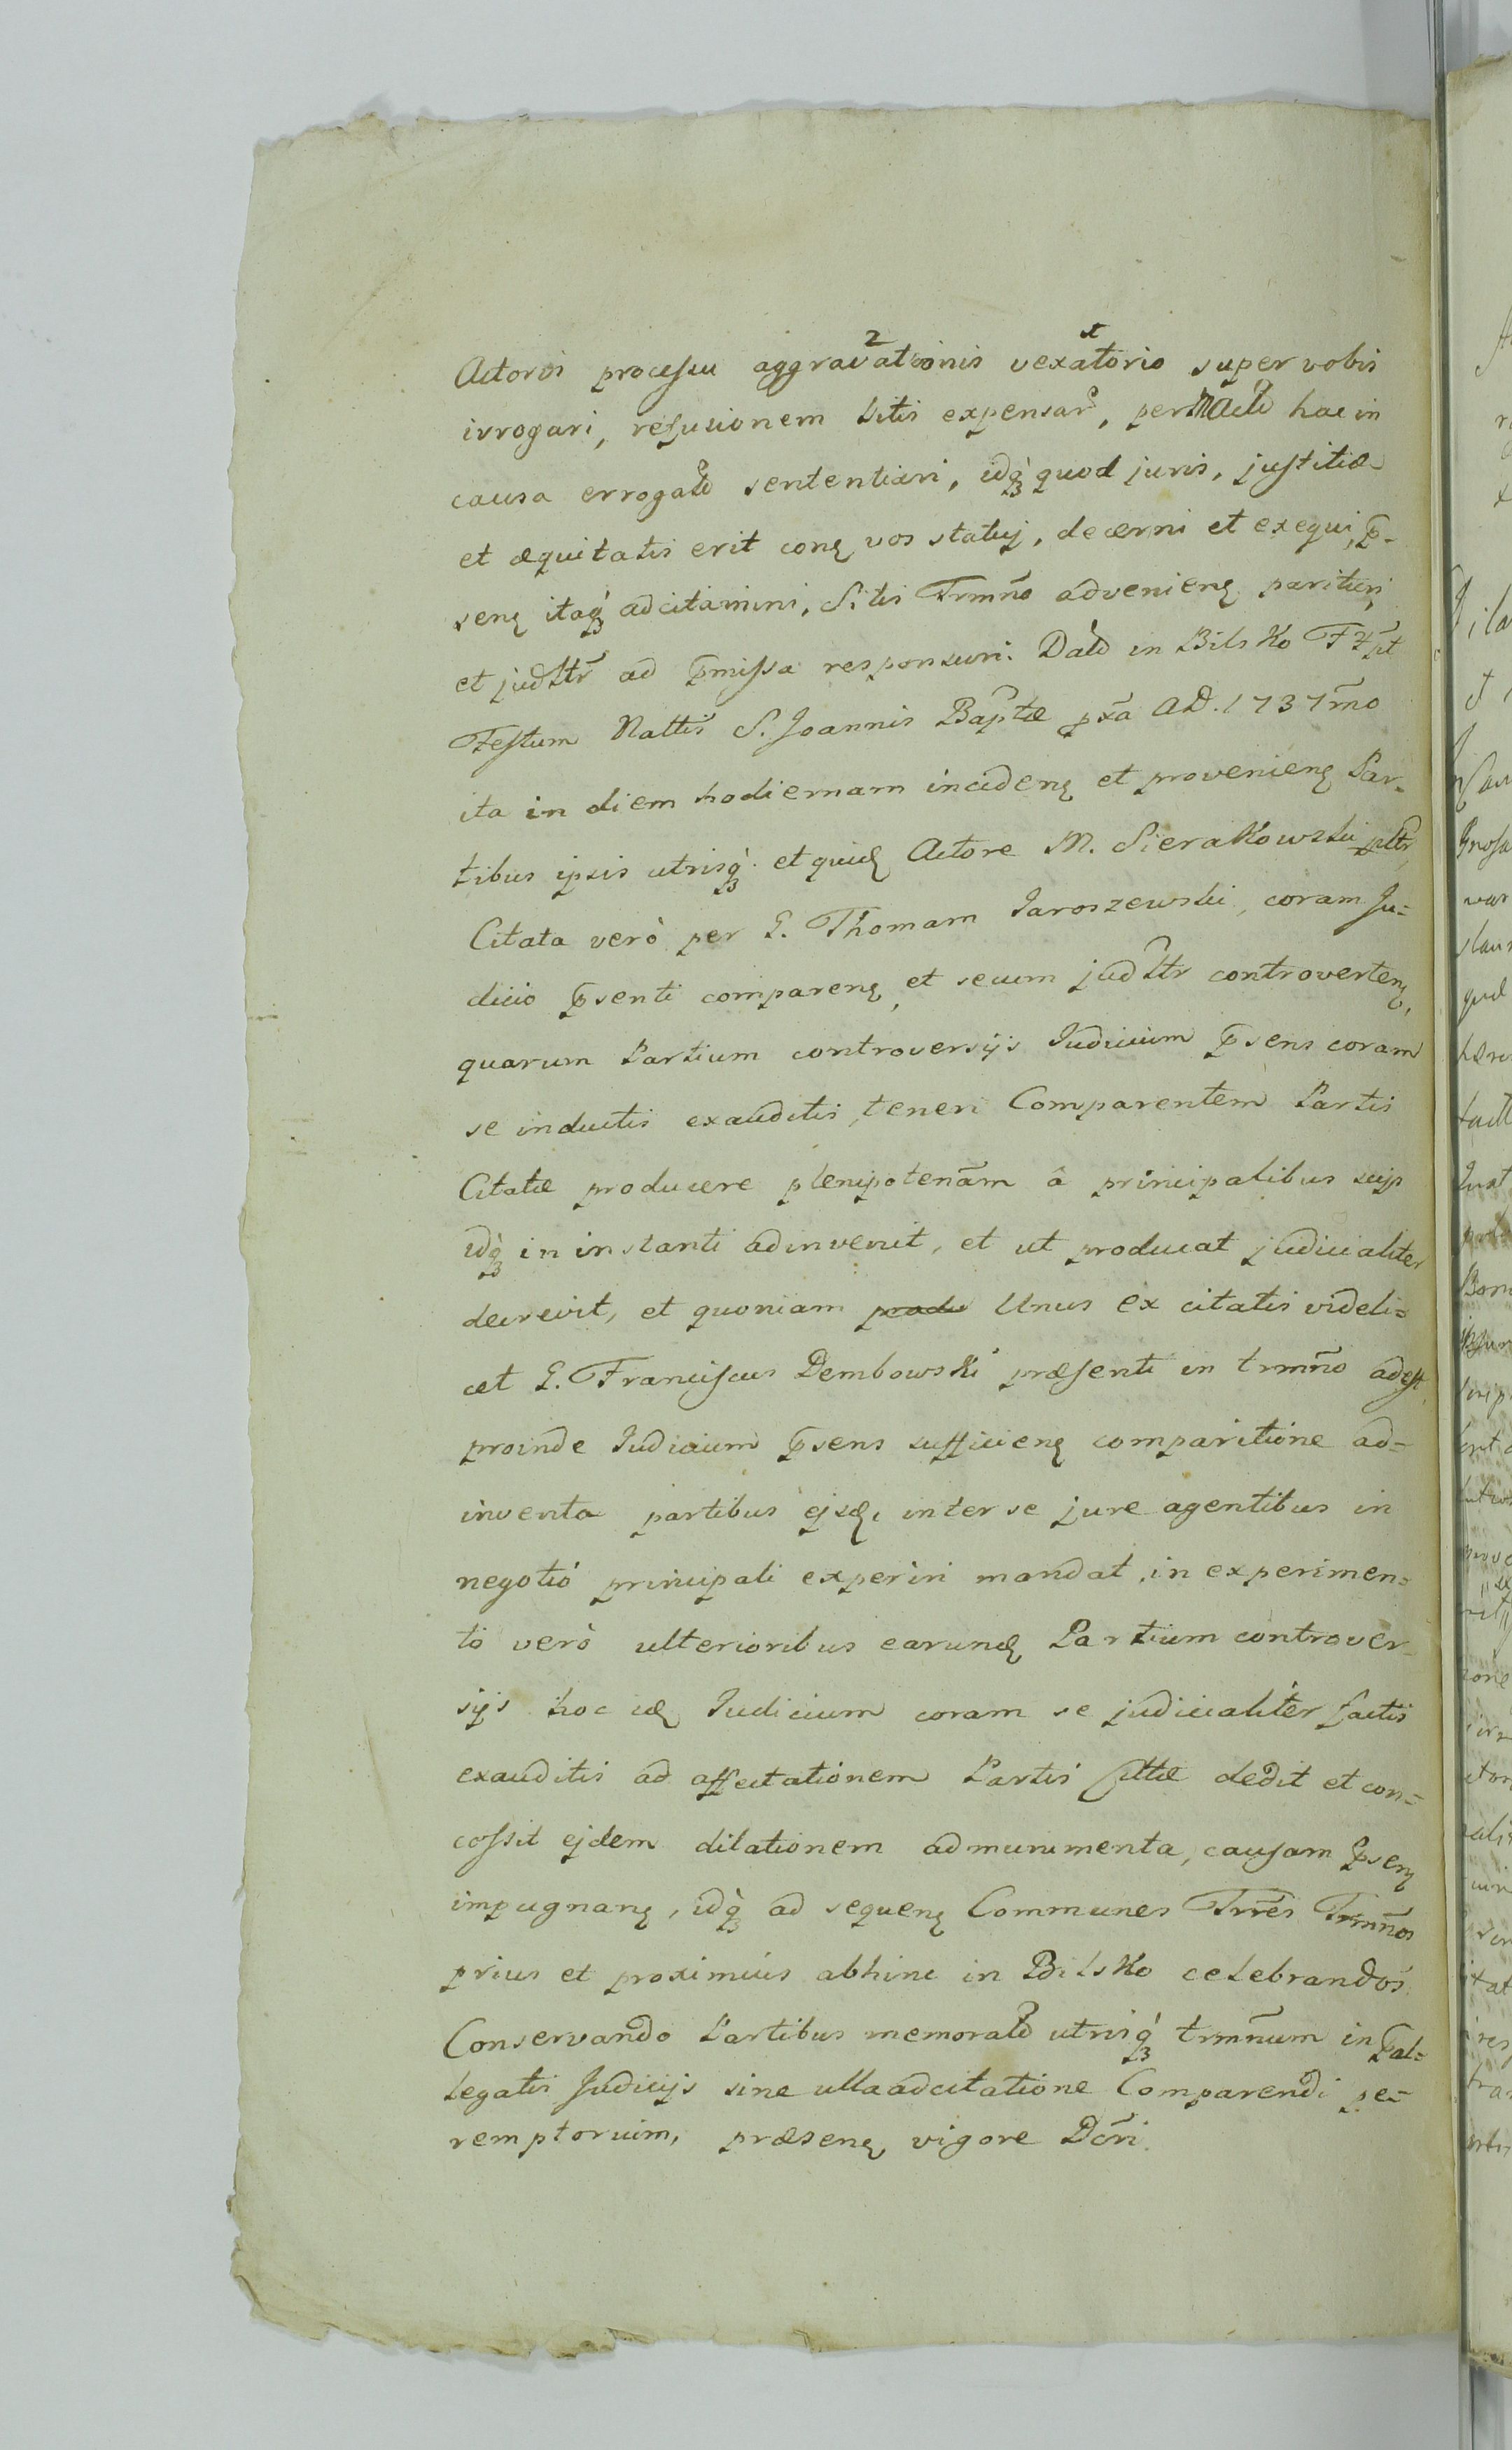 Actoris processu aggravationis vexatorio super vobis
irrogari, refusionem litis expensar, per Actor hac in
causa errogat sententiari, idq quod juris, justitiæ
et æquitatis erit conq vos statuj, decerni et exequi, p̄-
senq itaq adcitamini, Sitis Trmño advenienq parituri
et judltr ad p̄missa responsuri. Dat in Bilsko F
Festum Nattis S. Joannis Baptæ pxa AD. 1737mo
ita in diem hodiernam incidenq et provenienq Par-
tibus ipsis utrisq et quid Actore M. Sierakowski pltr,
Citata verò per G. Thomam Jaroszewski, coram Ju=
dicio p̄senti comparenq, et secum judltr controvertenq,
quarum Partium controversijs Judicium p̄sens coram
se inductis exauditis, teneri Comparentem Partis
Citatæ producere plenipotenãm â principalibus suijs
idq in instanti adinvenit, et ut producat judicialiter
decrevit, et quoniam produ Unus ex citatis videli=
cet G. Franciscus Dembowski præsenti in trmño adest,
proinde Judicium p̄sens sufficienq comparitione ad=
inventa partibus ejsd, inter se jure agentibus in
negotiò principali experiri mandat, in experimen=
to verò ulterioribus earund Partium controver-
sijs hoc id Judicium coram se judicialiter factis
exauditis ad affectationem Partis Cittæ dedit et con=
cessit ejdem dilationem ad munimenta, causam p̄senq
impugnanq, idq ad sequenq Communes Trres Trmños
prius et proximius abhinc in Bilsko celebrandos
Conservando Partibus memorat utrisq trmñum in p̄al=
legatis Judicijs sine ulla adcitatione Comparendi pe=
remptorium, præsenq vigore Dcri.